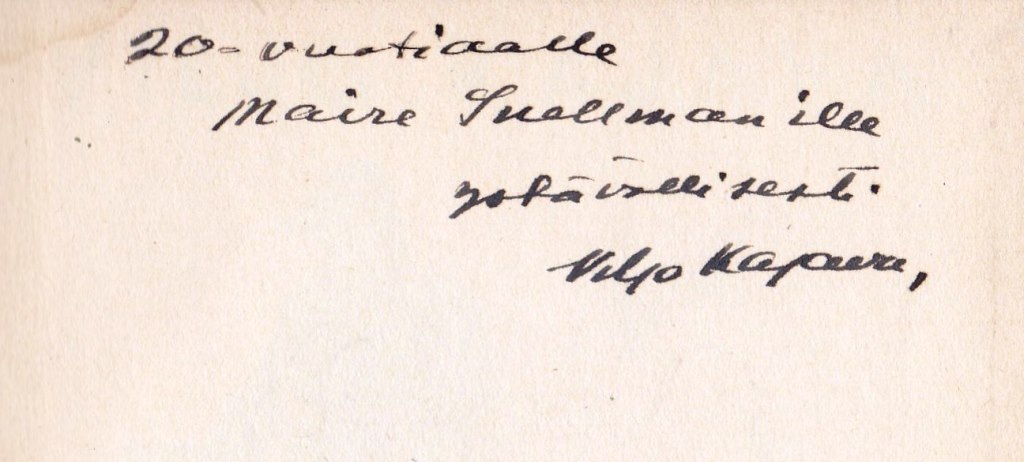 20-vuotiaalle
Maire Snellman'ille
ystävällisesti.
Viljo Kajava,